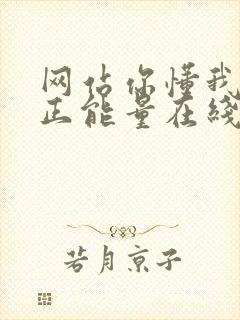 网站你懂我
正能量在线
若月京子